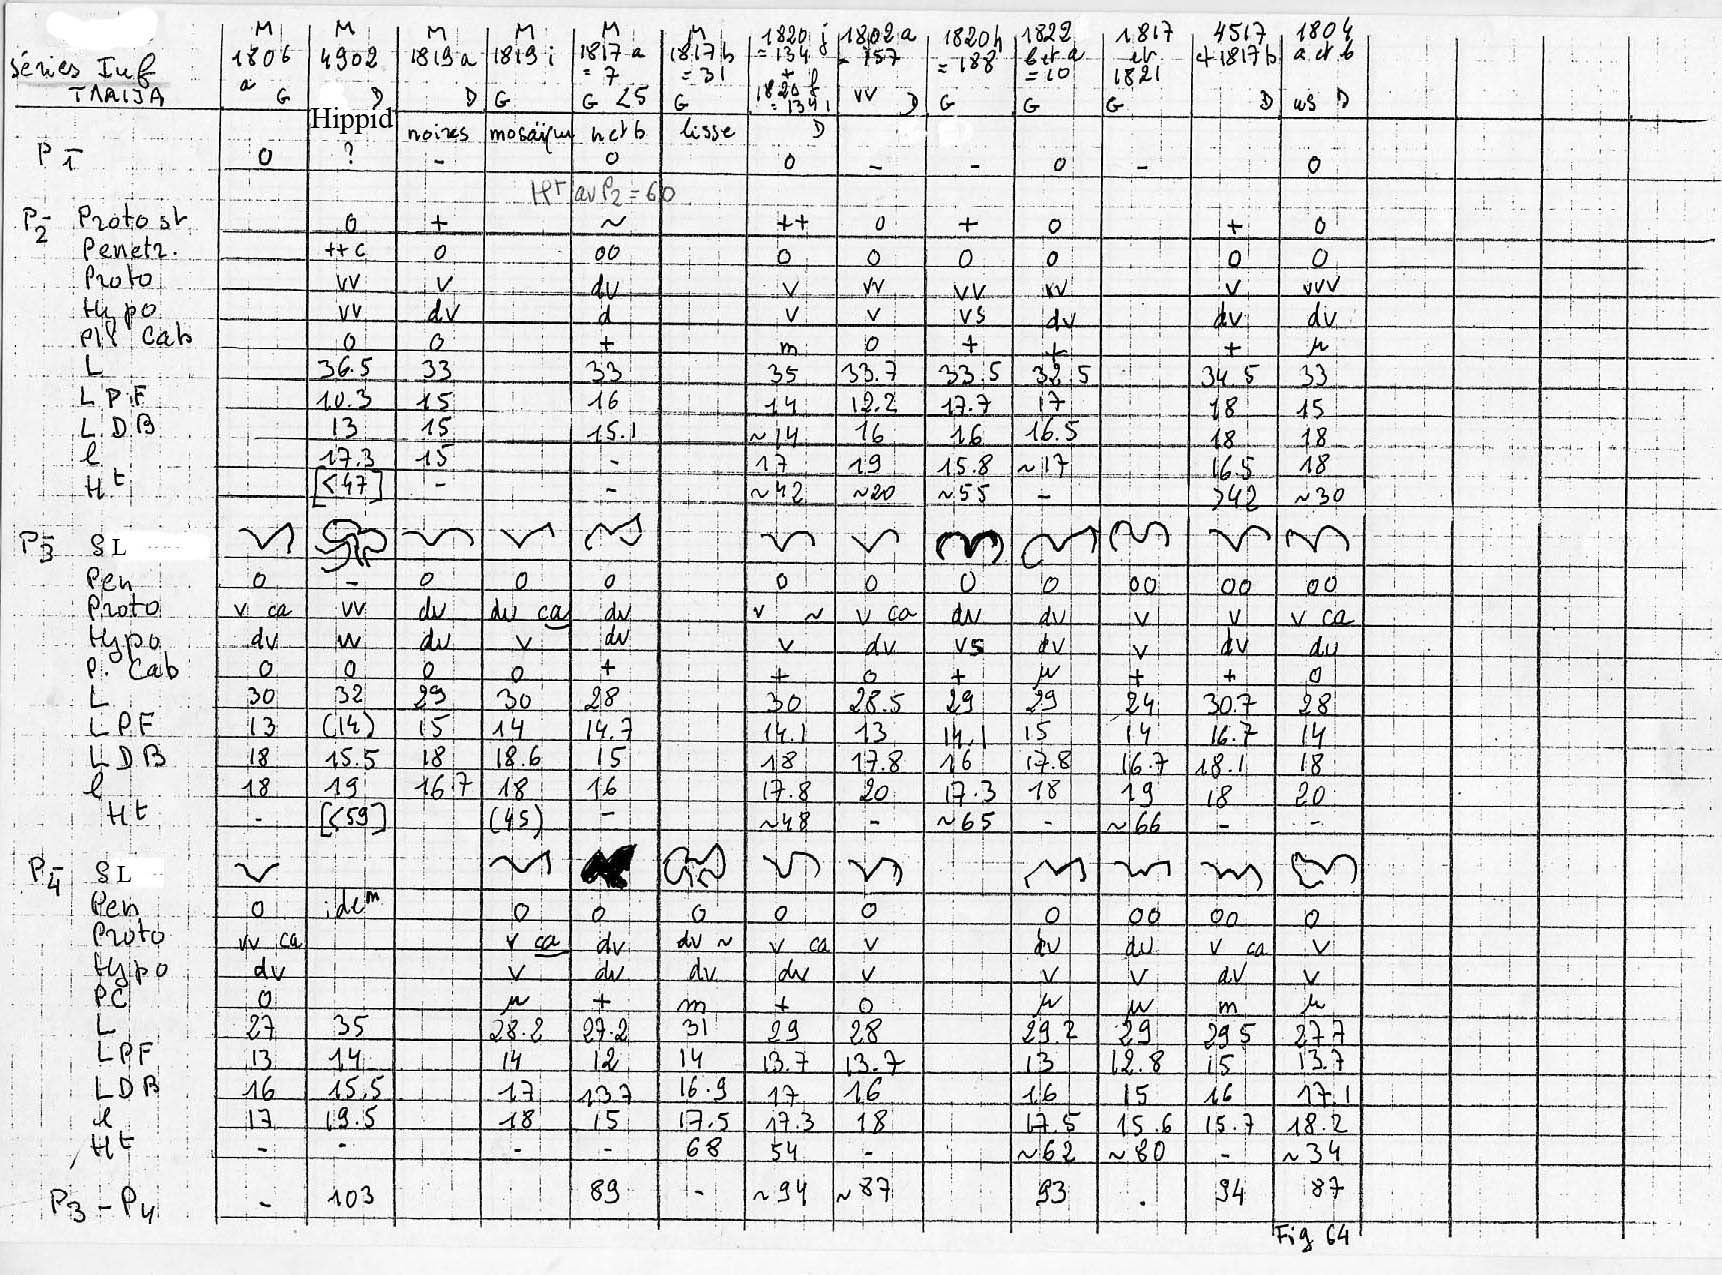 M M M M M M 1820 j 1802 a 1820 h 1822 1817 4517 1804
Séries Inf 1806 4902 1819a 1819 i 1817 a 1817 b = 134 = 157 = 188 b et a et + 1817 b a et b
TARIJA a = 7 = 31 + 1820 f = 10 1821
G D D G G <5 G vv D G G G D us D
Hippid noires mosaïque lisse D
P1 0 ? - 0 0 - - 0 - 0
Ht av P2 = 60
P2 Proto st 0 + ~ ++ 0 + 0 + 0
Penetr. ++ c 0 00 0 0 0 0 0 0
Proto vv v dv v vv vv vv v vvv
Hypo vv dv d v v vs dv dv dv
Pli Cab 0 0 + m 0 + + + µ
L 36.5 33 33 35 33.7 33.5 32.5 34.5 33
LPF 10.3 15 16 14 12.2 17.7 17 18 15
LDB 13 15 15.1 ~14 16 16 16.5 18 18
l 17.3 15 - 17 19 15.8 ~17 16.5 18
Ht [<47] - - ~42 ~20 ~55 - >42 ~30
P3 SL
Pen 0 - 0 0 0 0 0 0 0 00 00 00
Proto v ca vv dv dv ca dv v ~ v ca dv dv v v v ca
Hypo dv vv dv v dv v dv vs dv v dv dv
P. Cab 0 0 0 0 + + 0 + µ + + 0
L 30 32 29 30 28 30 28.5 29 29 24 30.7 28
LPF 13 (14) 15 14 14.7 14.1 13 14.1 15 14 16.7 14
LDB 18 15.5 18 18.6 15 18 17.8 16 17.8 16.7 18.1 18
l 18 19 16.7 18 16 17.8 20 17.3 18 19 18 20
Ht - [<59] (45) - ~48 - ~65 - ~66 - -
P4 SL
Pen 0 idem 0 0 0 0 0 0 00 00 0
Proto vv ca v ca dv dv ~ v ca v dv dv v ca v
Hypo dv v dv dv dv v v v dv v
PC 0 µ + m + 0 µ µ m µ
L 27 35 28.2 27.2 31 29 28 29.2 29 29.5 27.7
LPF 13 14 14 12 14 13.7 13.7 13 12.8 15 13.7
LDB 16 15.5 17 13.7 16.9 17 16 16 15 16 17.1
l 17 19.5 18 15 17.5 17.3 18 17.5 15.6 15.7 18.2
Ht - - - - 68 54 - ~62 ~80 - ~34
P3 - P4 - 103 89 - ~94 ~87 93 . 94 87
Fig 64